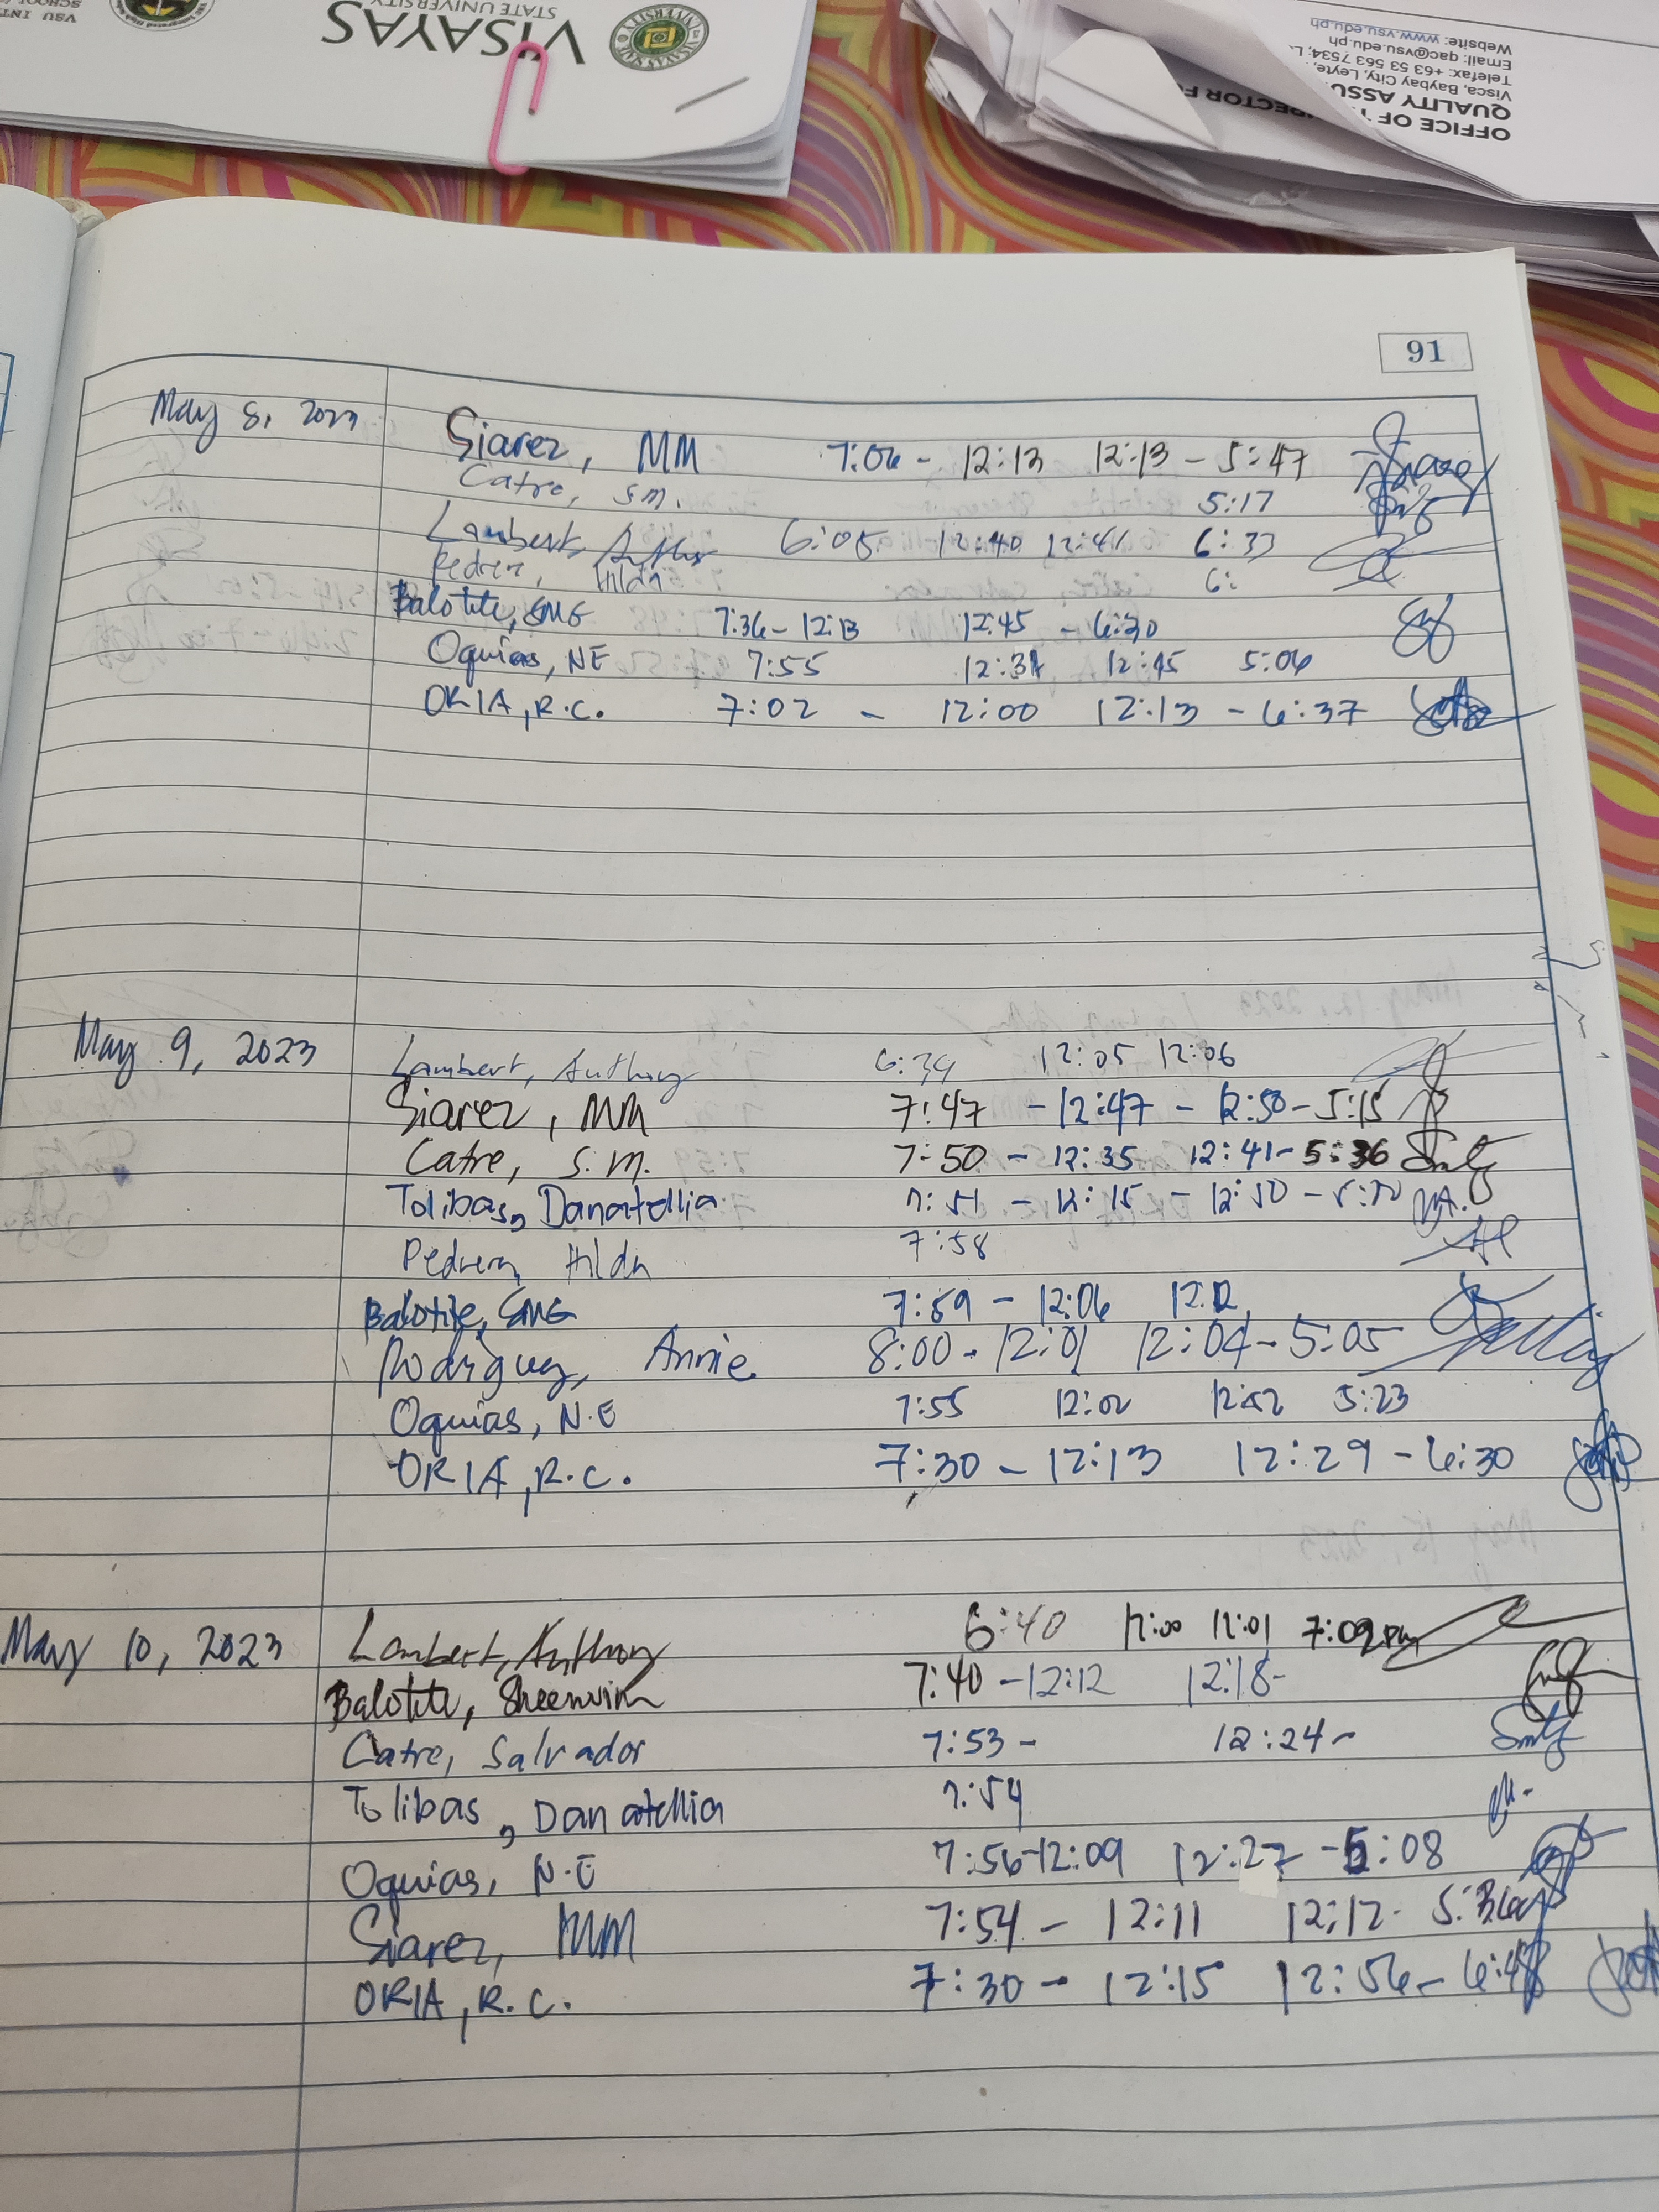 VSU INT
SCHOOL
VISAYAS
STATE UNIVERSITY
OFFICE OF T
QUALITY ASSU
Visca, Baybay City, Leyte,
Telefax: +63 53 563 7534; L
Email: qac@vsu.edu.ph
Website: www.vsu.edu.ph
91
May 8, 2023 Siarez, MM 7:06 - 12:13 12:13 - 5:47
Catre, S.M. 5:17
Lambert, 6:05 12:40 12:41 6:33
Hilda 6:
Balotite, SMG 7:36 - 12:13 12:45 - 6:30
Oquias, NE 7:55 12:45 5:06
ORIA, R.C. 7:02 - 12:00 12:13 - 6:37
May 9, 2023 Lambert, Anthony 6:34 12:05 12:06
Siarez, MM 7:47 - 12:47 - 12:50 - 5:15
Catre, S.M. 7:50 - 12:35 12:41 - 5:36
Tolibas, Danatellia 7:51 - 12:15 - 12:50 -
Hilda 7:58
Balotite, SMG 7:59 - 12:06 12:12
Annie 8:00 - 12:01 12:04 - 5:05
Oquias, N.E 7:55 12:02 12:52 5:23
ORIA, R.C. 7:30 - 12:13 12:29 - 6:30
May 10, 2023 Lambert, Anthony 6:40 12:00 12:01 7:02pm
Balotite, 7:40 - 12:12 12:18 -
Catre, Salvador 7:53 - 12:24 -
Tolibas, Danatellia 7:54
Oquias, N.E 7:56 - 12:09 12:27 - 5:08
Siarez, MM 7:54 - 12:11 12:12 -
ORIA, R.C. 7:30 - 12:15 12:56 - 6:48